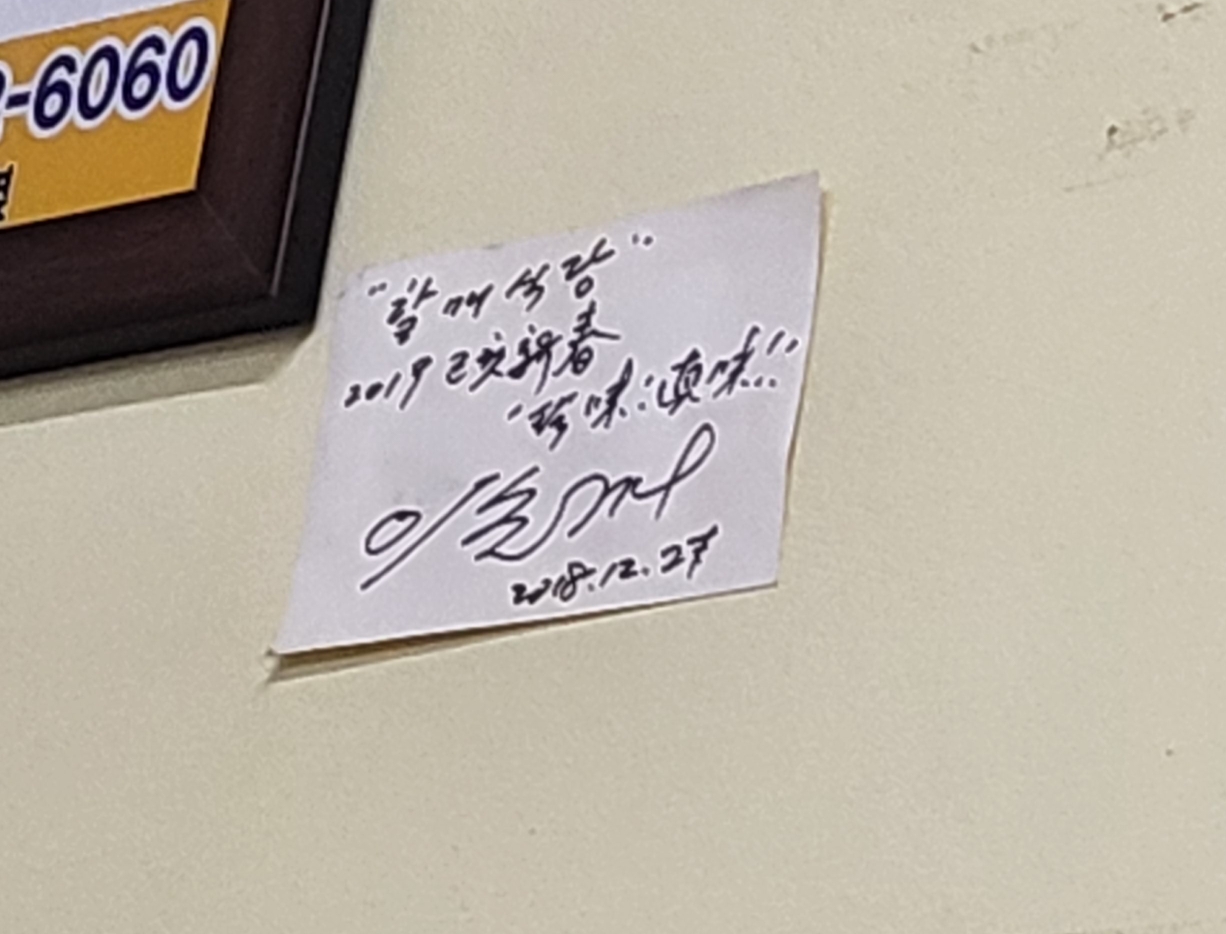 -6060
"할매식당"
2019 己亥新春
"珍味:眞味!!"
2018.12.27